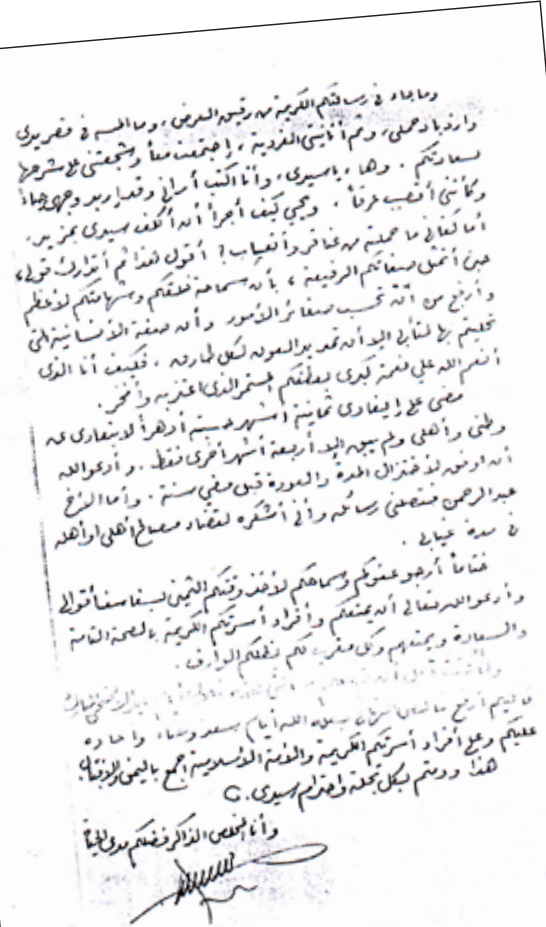 وما جاء في رسالتكم الكريمة من رقيق العرض، وما ألمسه في قصر يدي
وازدياد حملي، ونمو أنانيتي الفردية، اجتمعت معاً وشجعتني على شرحها
لسعادتكم. وها، يا سيدي، وأنا أكتب أراني وقد اربد وجهي حياءً
وكأنني أتصبب عرقاً. ويحي كيف أجرأ أن أكلف سيدي بمزيد،
أما كفاني ما حملته من عناء وأتعاب؟ أقول لهذا ثم أتدارك قولي،
حين أتمثل صفاتكم الرفيعة، بأن سماحة خلقكم وشهامتكم لأعظم
وأرفع من أن تحسب صغائر الأمور وأن صفة الإنسانية التي
تحليتم بها لتأبى إلا أن تمد يد العون لكل طارق. فكيف أنا الذي
أنعم الله علي نعمة كبرى بعطفكم المستمر الذي أعتز به وأفخر.
مضى على إيفادي ثمانية أشهر حسبتها دهراً لابتعادي عن
وطني وأهلي ولم يبق إلا أربعة أشهر أخرى فقط. وأدعو الله
أن أوفق لاختزال المدة والعودة قبل مضي سنة. وأما الأخ
عبد الرحمن فتصلني رسائله وأني أشكره لقضاء مصالح أهلي وأهله
في مدة غيابي.
ختاماً أرجو عفوكم وسماحكم لأخذ وقتكم الثمين لسفاسف أقوالي
وأدعو الله تعالى أن يمتعكم وأفراد أسرتكم الكريمة بالصحة التامة
والسعادة ويمتعهم وكل مقرب لكم بظلكم الوارف.
أرفع التهاني الله أيام سعد وهناء وأعاده
عليكم وعلى أفراد أسرتكم الكريمة والأمة الإسلامية أجمع باليمن والإقبال
هذا ودمتم لكل تجلة واحترام سيدي.
وأنا المخلص الذاكر فضلكم مدى الحياة